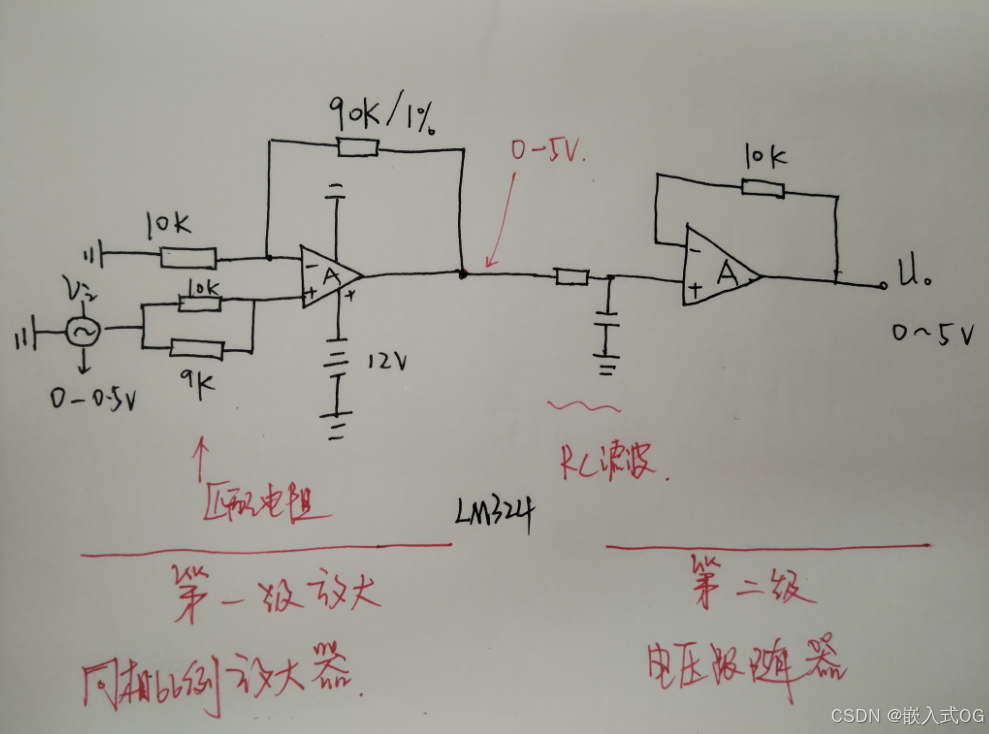 90K/1%
0-5V.
10K
10K
A
-
+
+
10K
Vi
~
9K
0-0.5V
12V
-
+
A
U。
0~5V
匹配电阻
RC滤波.
LM324
第一级放大
同相比例放大器.
第二级
电压跟随器
CSDN @嵌入式OG